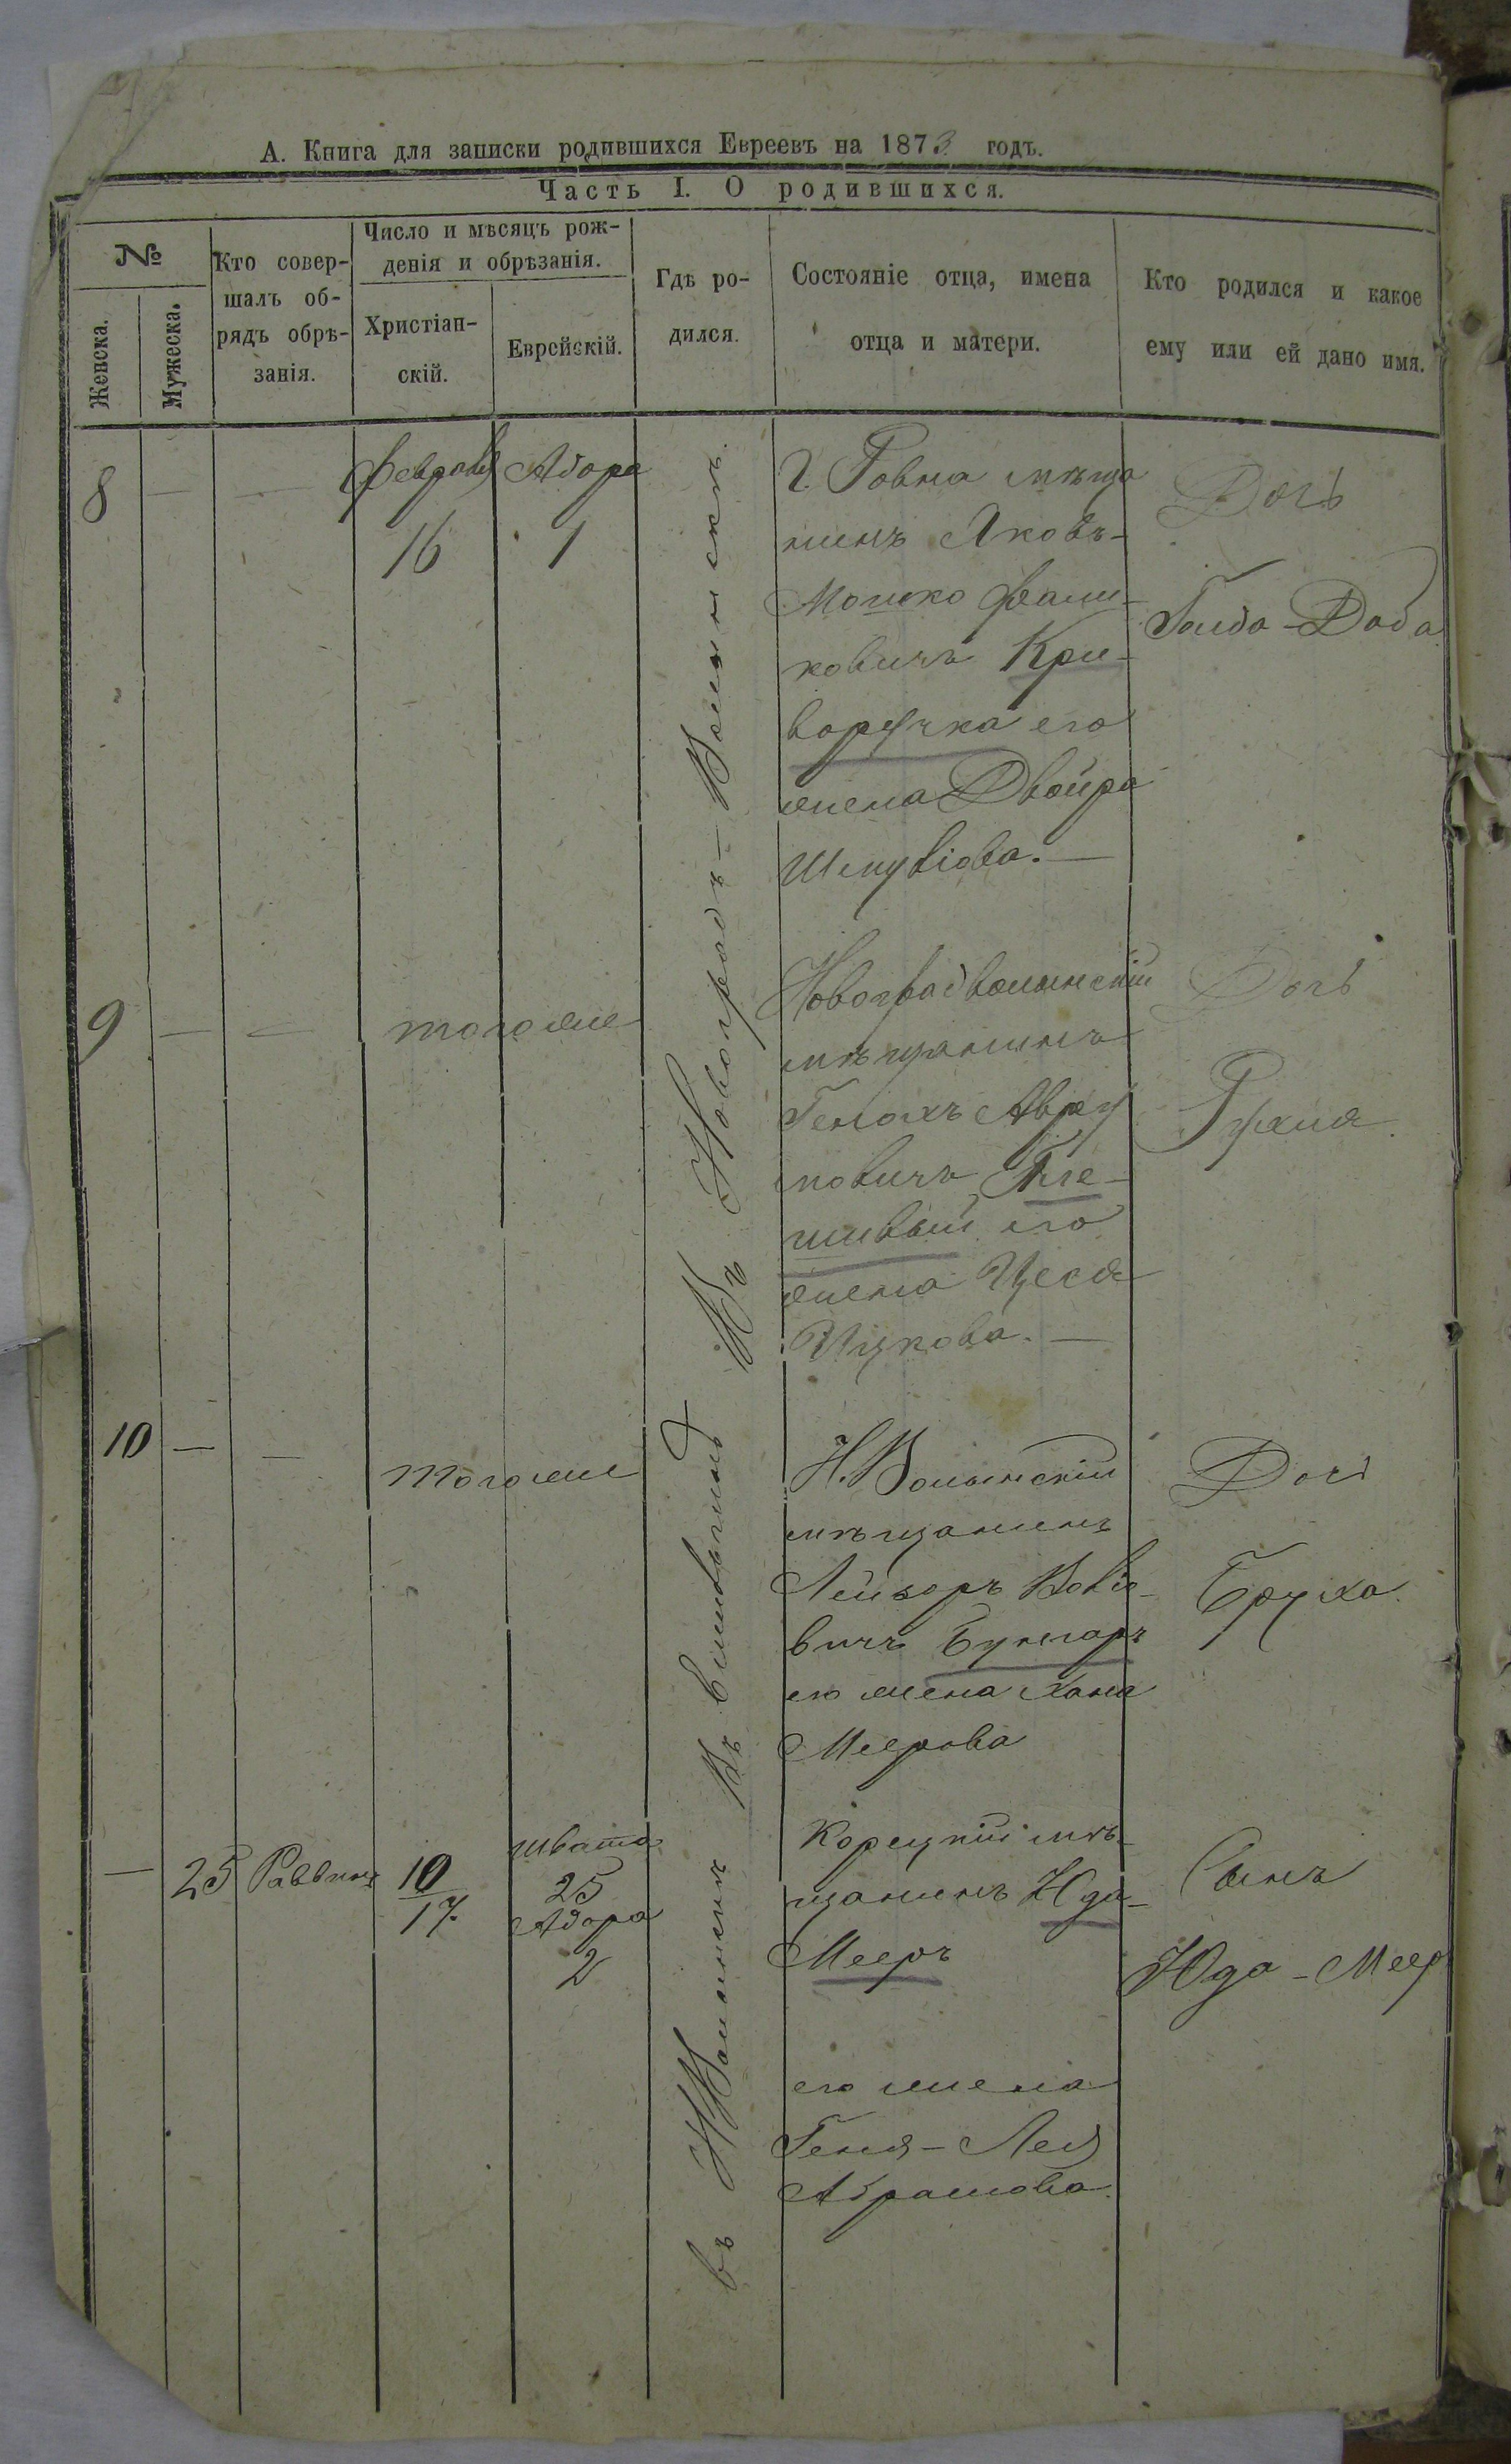 А. Книга для записки родившихся Евреевъ на 1873 годъ.
Часть I. О родившихся.
№
Женска.
Мужеска.
Кто совер-
шалъ об-
рядъ обрѣ-
занія.
Число и мѣсяцъ рож-
денія и обрѣзанія.
Христіан-
скій.
Еврейскій.
Гдѣ ро-
дился.
Состояніе отца, имена
отца и матери.
Кто родился и какое
ему или ей дано имя.
8 — —
Февраля
16
Адара
1
Въ Новоградъ-Волынскѣ.
Г. Ровна мѣща
нинъ Яковъ-
Мошко
ковичъ Кри-
воручка его
жена Двойра
Шмулiова. —
Дочь
Голда-Доба
9 — —
того же
Новоградволынскій
мѣщанинъ
Генахъ Авру
мовичъ
его
жена Цеся
Ицкова. —
Дочь
Рухля.
10 — —
того же
Въ
Н. Волынскій
мѣщанинъ
Лейзоръ Вовіо-
вичъ
его жена Хана
Меерова
Дочь
Бруха.
— 25 Раввинъ
10
17.
швата
25
Адара
2
въ НВолынскѣ
Корецкій мѣ-
щанинъ Юда-
Мееръ
его жена
Геня-Лея
Абрамова.
Сынъ
Юда-Меер